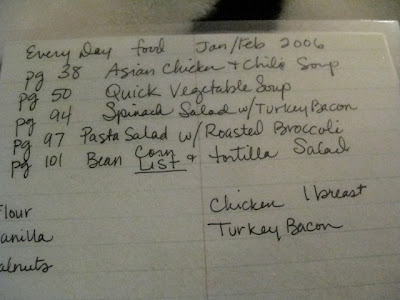 Every Day food Jan/Feb 2006
pg 38 Asian Chicken + Chile Soup
pg 50 Quick Vegetable Soup
pg 94 Spinach Salad w/Turkey Bacon
pg 97 Pasta Salad w/ Roasted Broccoli
pg 101 Bean Corn & tortilla Salad
LIST
Flour
Chicken 1 breast
anilla
Turkey Bacon
alnuts